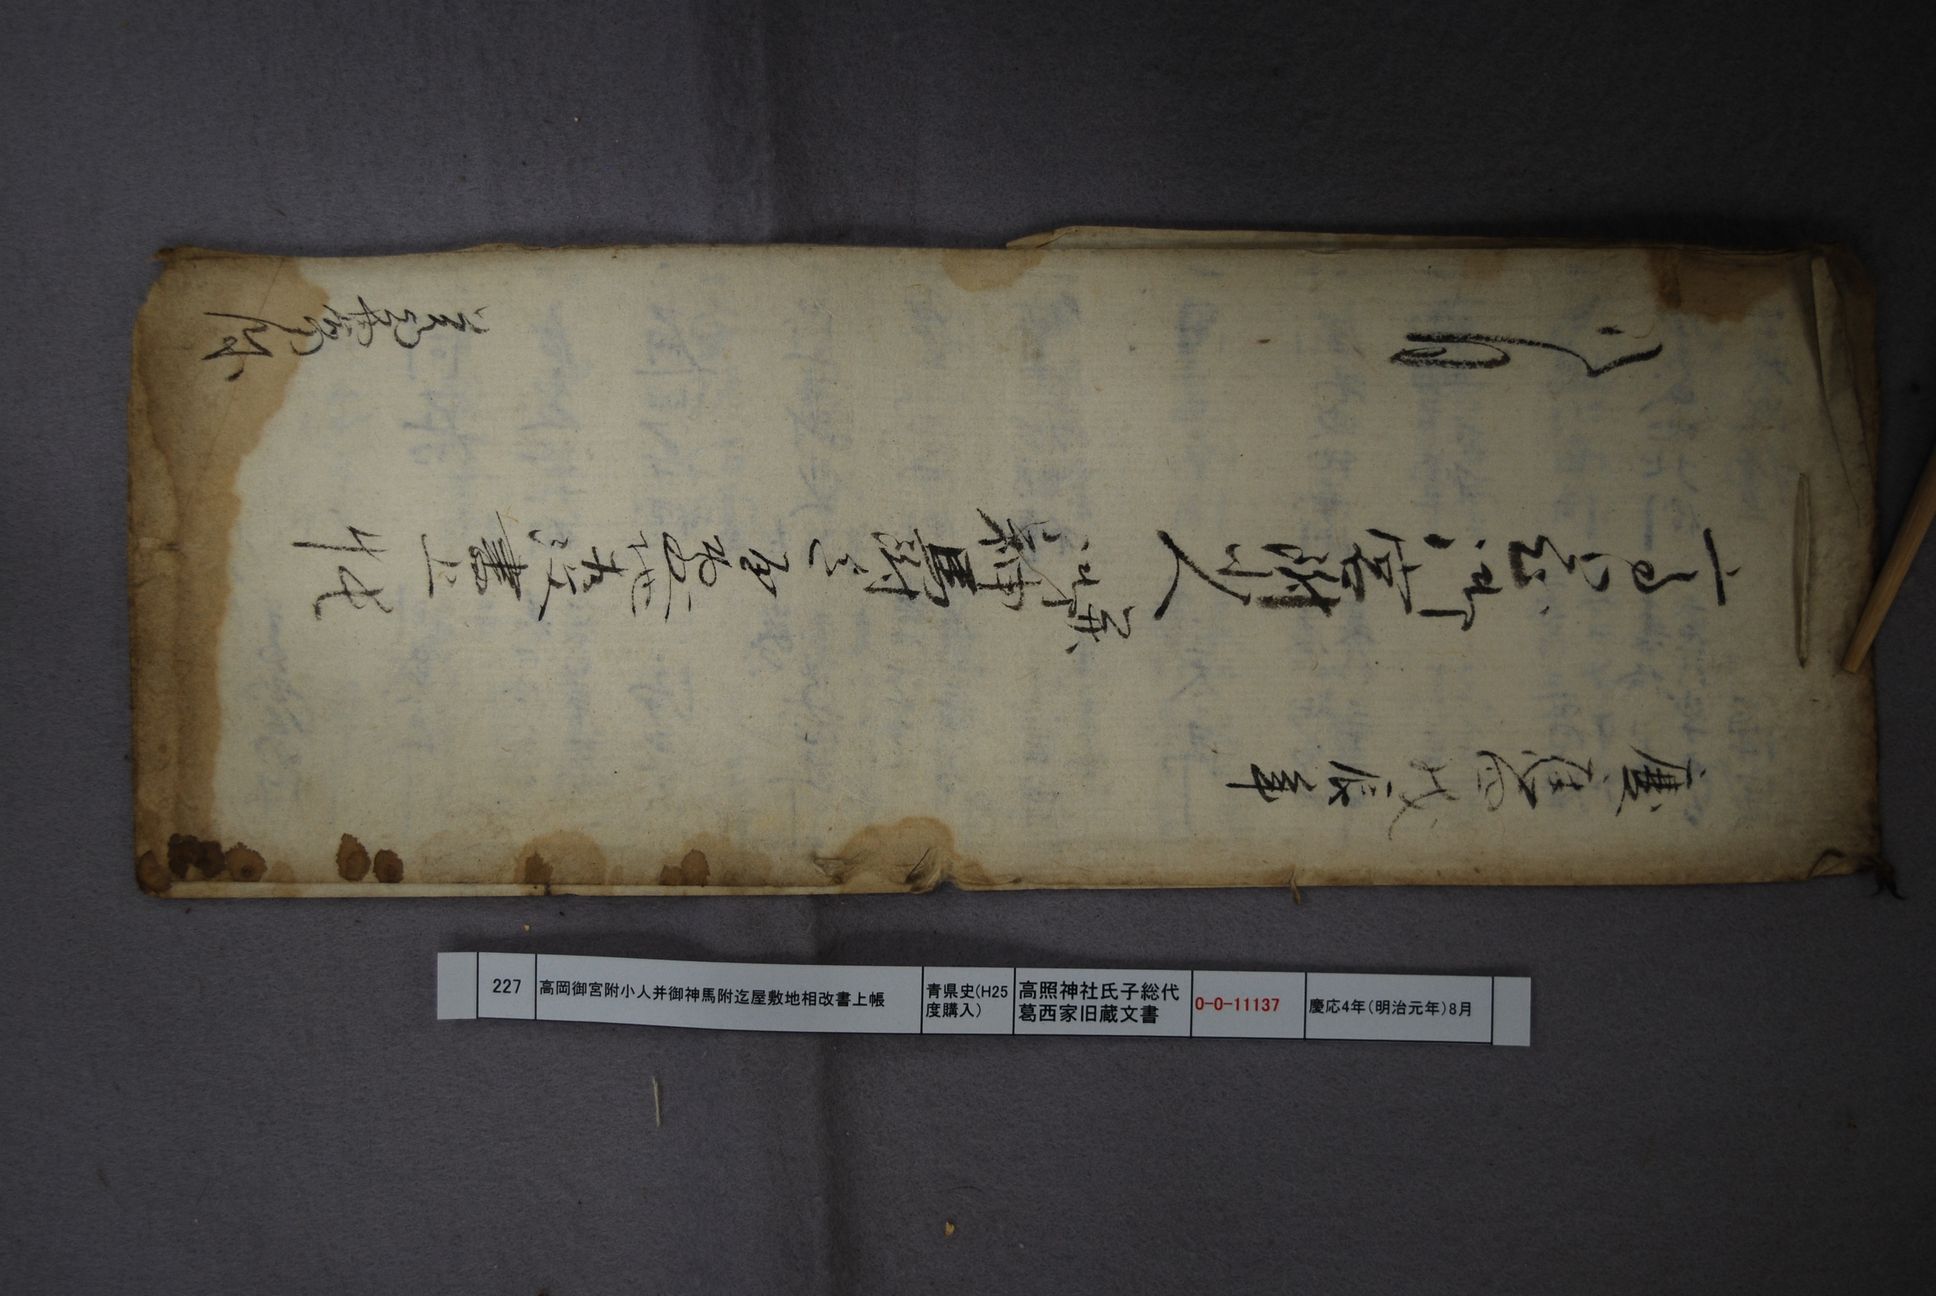 慶應四戊辰年
高岡御宮附小人并御神馬附迄屋敷地相改書上帳
八月
227
高岡御宮附小人并御神馬附迄屋敷地相改書上帳
青県史(H25
度購入)
高照神社氏子総代
葛西家旧蔵文書
0-0-11137
慶応4年(明治元年)8月